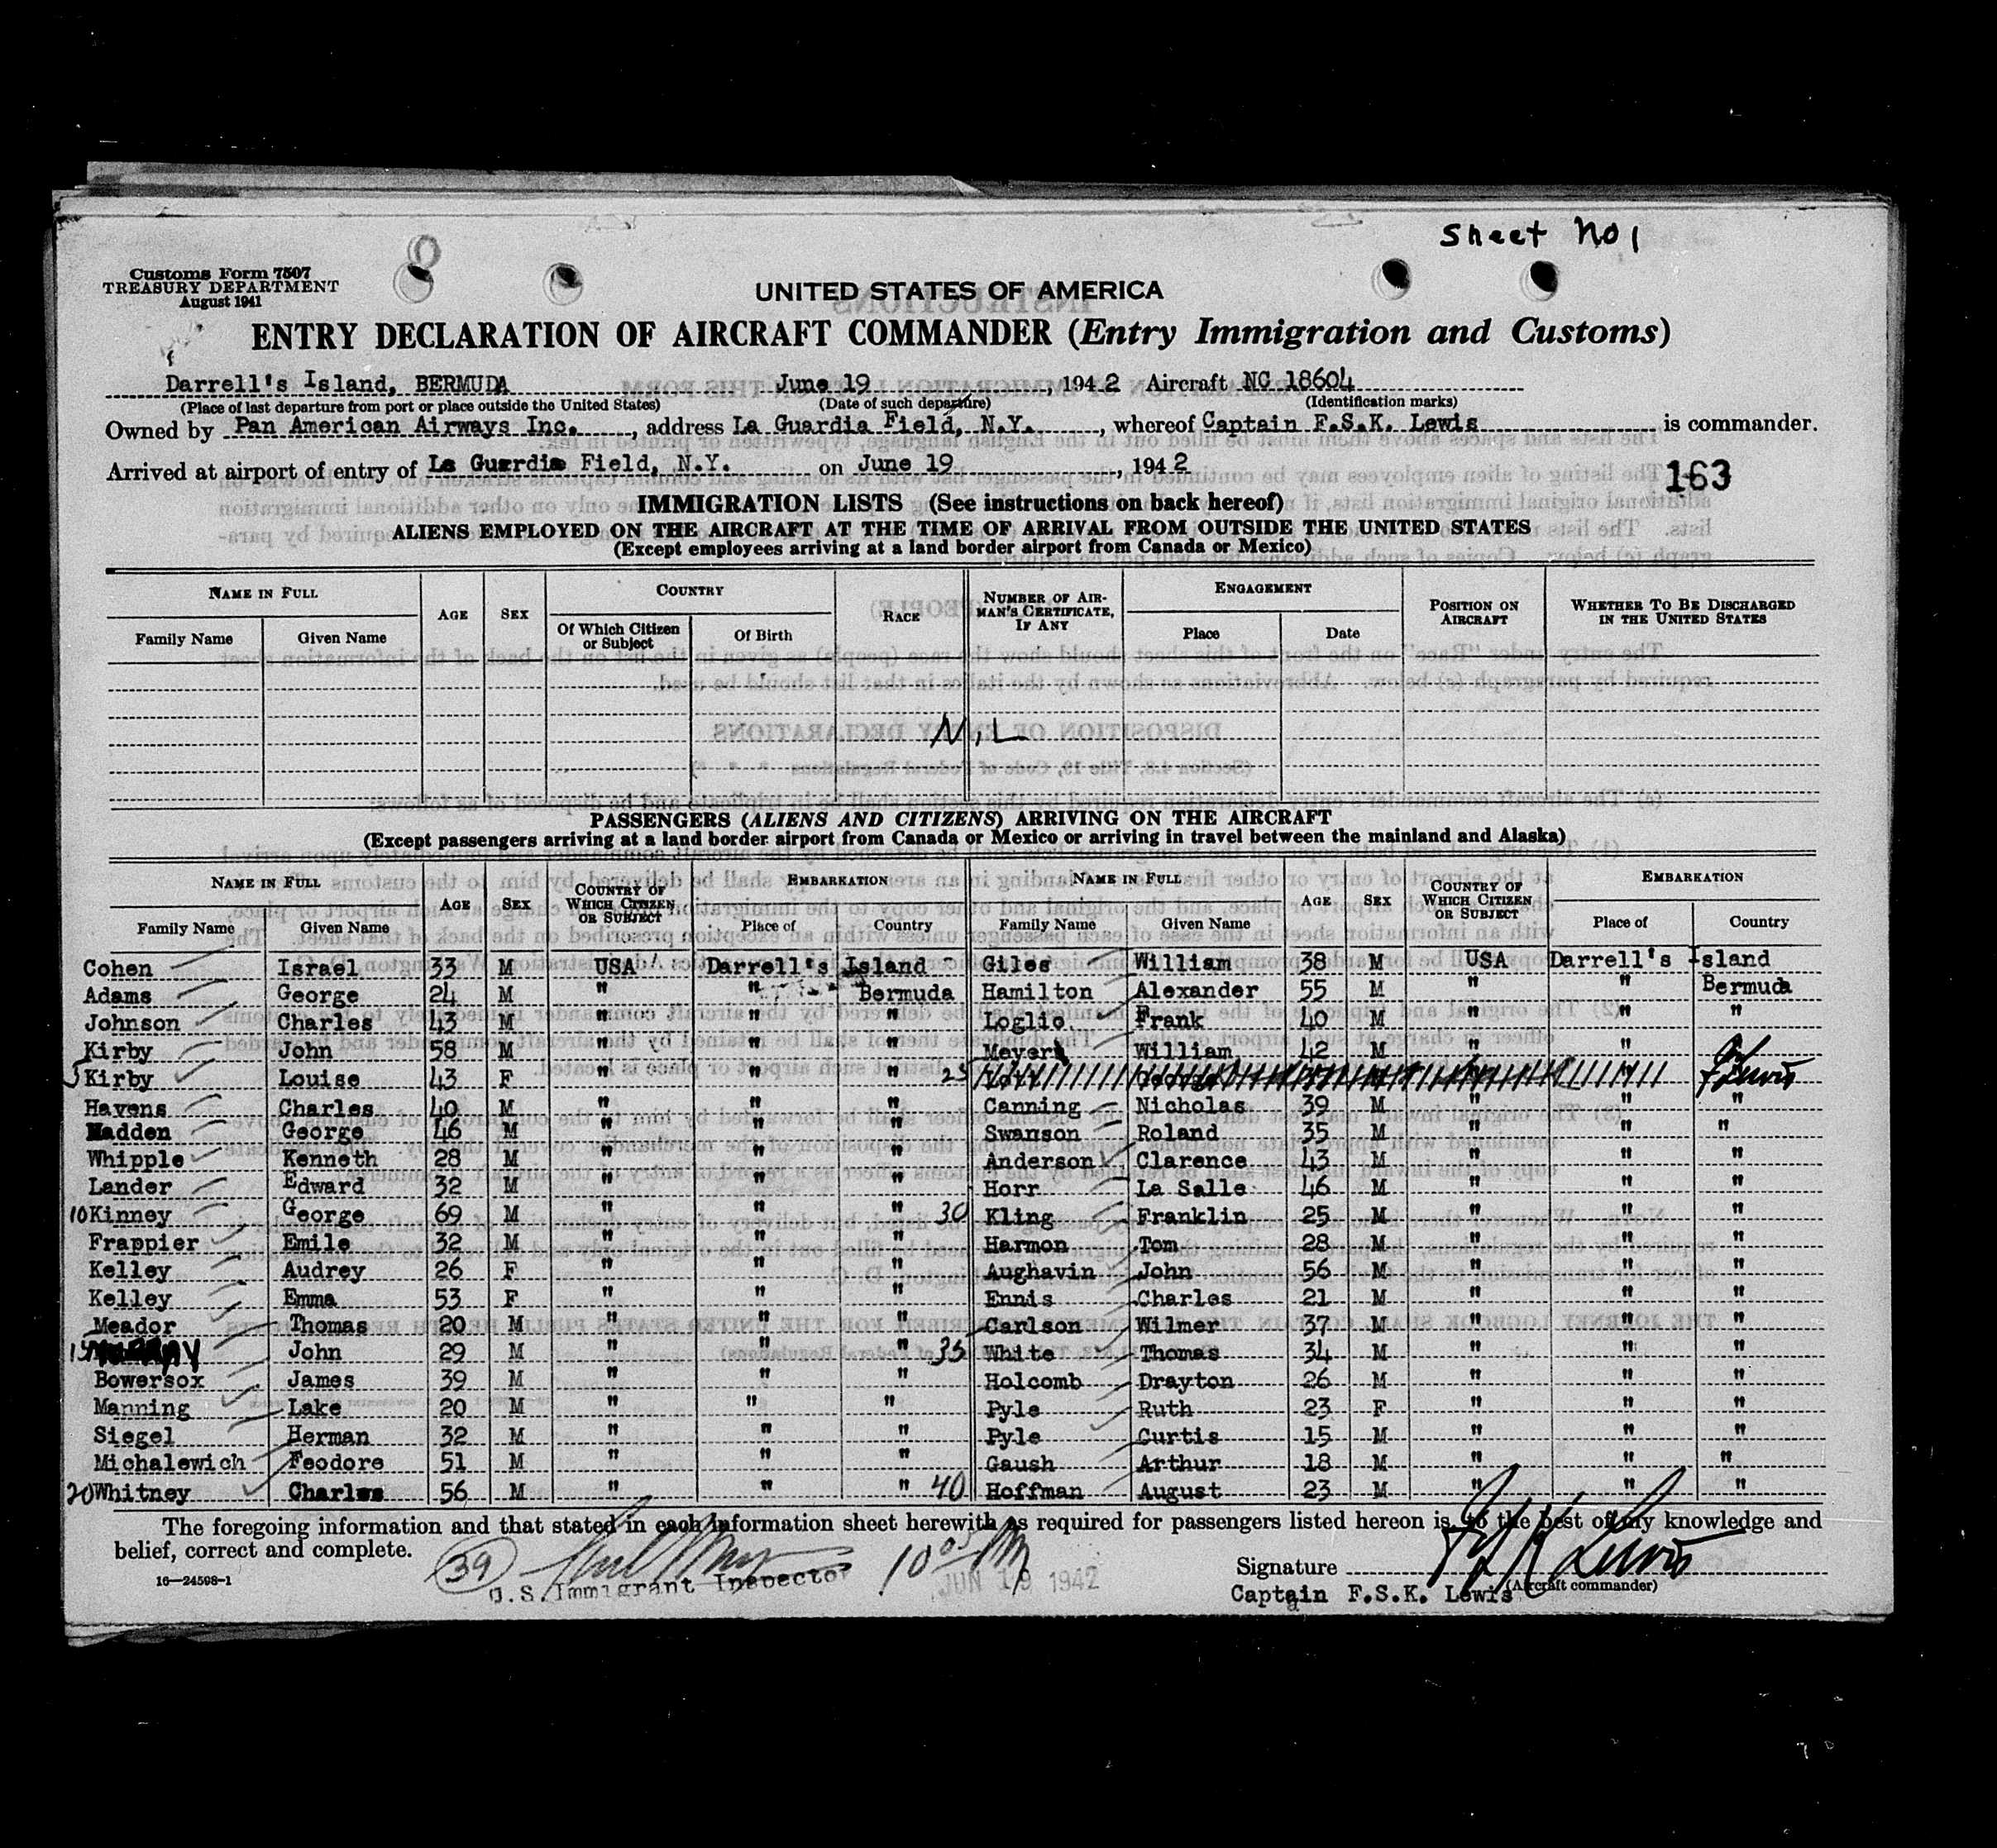 Sheet No 1
Customs Form 7507
TREASURY DEPARTMENT
August 1941
UNITED STATES OF AMERICA
ENTRY DECLARATION OF AIRCRAFT COMMANDER (Entry Immigration and Customs)
Darrell's Island, BERMUDA June 19, 1942 Aircraft NC 18604
(Place of last departure from port or place outside the United States) (Date of such departure) (Identification marks)
Owned by Pan American Airways Inc., address La Guardia Field, N.Y., whereof Captain F.S.K. Lewis is commander.
Arrived at airport of entry of La Guardia Field, N.Y. on June 19, 1942
163
IMMIGRATION LISTS (See instructions on back hereof)
ALIENS EMPLOYED ON THE AIRCRAFT AT THE TIME OF ARRIVAL FROM OUTSIDE THE UNITED STATES
(Except employees arriving at a land border airport from Canada or Mexico)
NAME IN FULL AGE SEX COUNTRY RACE NUMBER OF AIRMAN'S CERTIFICATE, IF ANY ENGAGEMENT POSITION ON AIRCRAFT WHETHER TO BE DISCHARGED IN THE UNITED STATES
Family Name Given Name Of Which Citizen or Subject Of Birth Place Date
NIL
PASSENGERS (ALIENS AND CITIZENS) ARRIVING ON THE AIRCRAFT
(Except passengers arriving at a land border airport from Canada or Mexico or arriving in travel between the mainland and Alaska)
NAME IN FULL AGE SEX COUNTRY OF WHICH CITIZEN OR SUBJECT EMBARKATION NAME IN FULL AGE SEX COUNTRY OF WHICH CITIZEN OR SUBJECT EMBARKATION
Family Name Given Name Place of Country Family Name Given Name Place of Country
Cohen Israel 33 M USA Darrell's Island Giles William 38 M USA Darrell's Island
Adams George 24 M " " Bermuda Hamilton Alexander 55 M " " Bermuda
Johnson Charles 43 M " " " Loglio Frank 40 M " " "
Kirby John 58 M " " " Meyer William 42 M " "
5 Kirby Louise 43 F " " " 25 F Lewis
Havens Charles 40 M " " " Canning Nicholas 39 M " " "
Madden George 46 M " " " Swanson Roland 35 M " " "
Whipple Kenneth 28 M " " " Anderson Clarence 43 M " " "
Lander Edward 32 M " " " Horr La Salle 46 M " " "
10 Kinney George 69 M " " " 30 Kling Franklin 25 M " " "
Frappier Emile 32 M " " " Harmon Tom 28 M " " "
Kelley Audrey 26 F " " " Aughavin John 56 M " " "
Kelley Emma 53 F " " " Ennis Charles 21 M " " "
Meador Thomas 20 M " " " Carlson Wilmer 37 M " " "
15 John 29 M " " " 35 White Thomas 34 M " " "
Bowersox James 39 M " " " Holcomb Drayton 26 M " " "
Manning Lake 20 M " " " Pyle Ruth 23 F " " "
Siegel Herman 32 M " " " Pyle Curtis 15 M " " "
Michalewich Feodore 51 M " " " Gaush Arthur 18 M " " "
20 Whitney Charles 56 M " " " 40 Hoffman August 23 M " " "
The foregoing information and that stated in each information sheet herewith as required for passengers listed hereon is, to the best of my knowledge and
belief, correct and complete.
16—24598-1
39
U.S. Immigrant Inspector
JUN 19 1942
Signature F.S.K Lewis
(Aircraft commander)
Captain F.S.K. Lewis